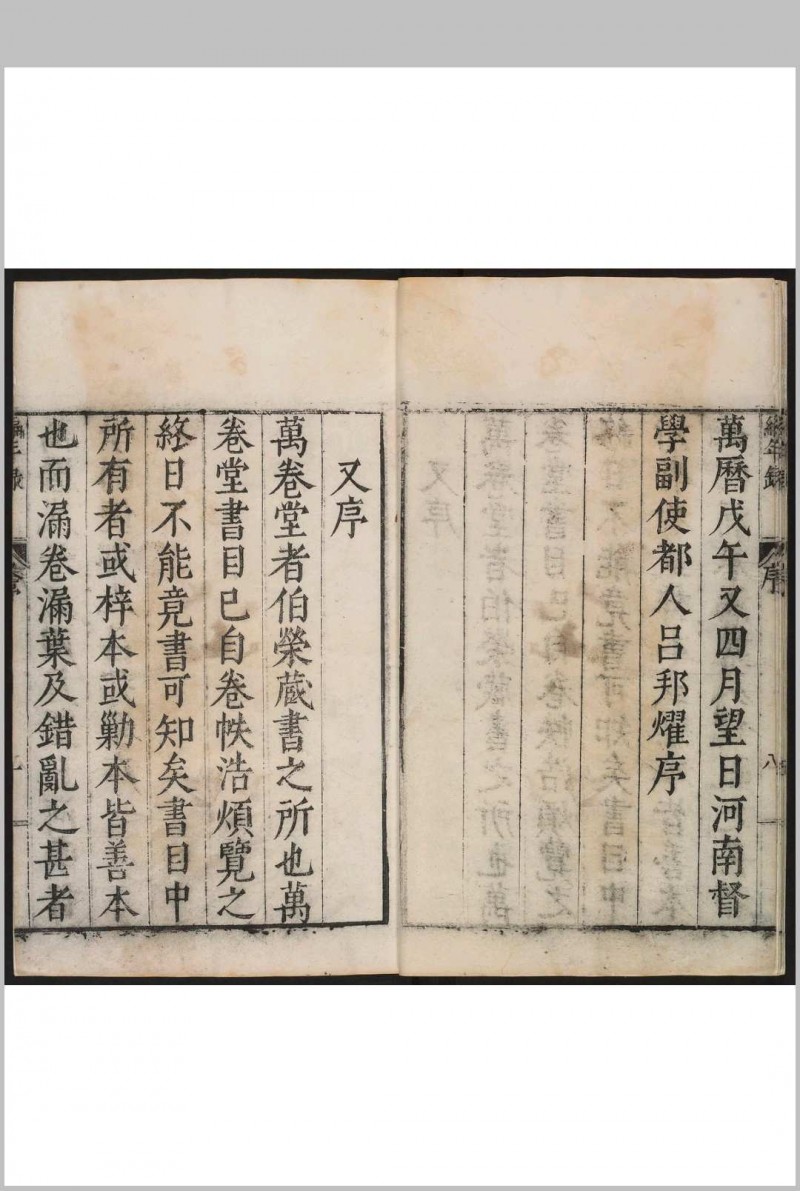 萬曆戊午又四月望日河南督
學副使都人呂邦燿序
序
八
又序
萬卷堂者伯榮蔵書之所也萬
卷堂書目已自卷帙浩煩覽之
終日不能竟書可知矣書目中
所有者或梓本或勦本皆善本
也而漏卷漏葉及錯亂之甚者